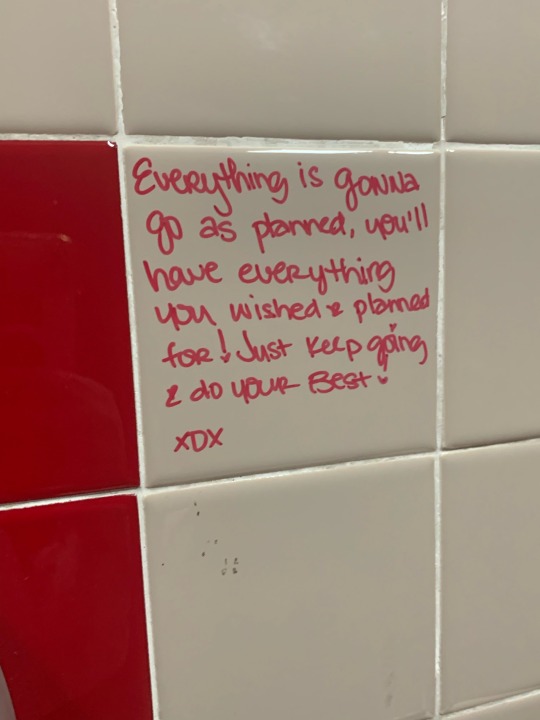 Everything is gonna
go as planned, you'll
have everything
you wished & planned
for! Just keep going
& do your Best!
XDX